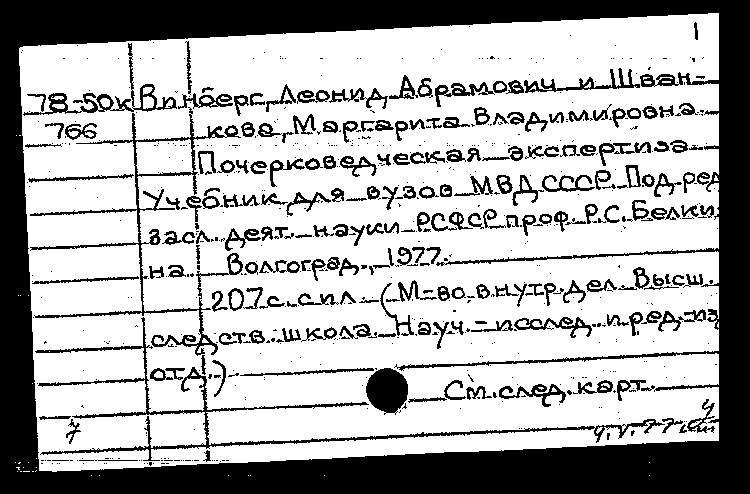 1
78-50к Винберг, Леонид Абрамович и Шван-
766 кова, Маргарита Владимировна
Почерковедческая экспертиза
Учебник для вузов МВД СССР. Под ред.
засл. деят. науки РСФСР проф. Р.С. Белки-
на Волгоград, 1977.
207 с. с ил. (М-во внутр. дел. Высш.
следств. школа. Науч.-исслед. и ред.-из
отд.)
См. след. карт.
7